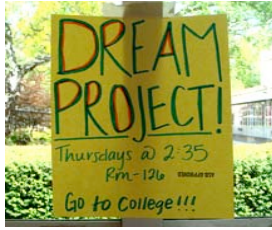 DREAM
PROJECT!
Thursdays @ 2:35
Rm-126
Go to College!!!